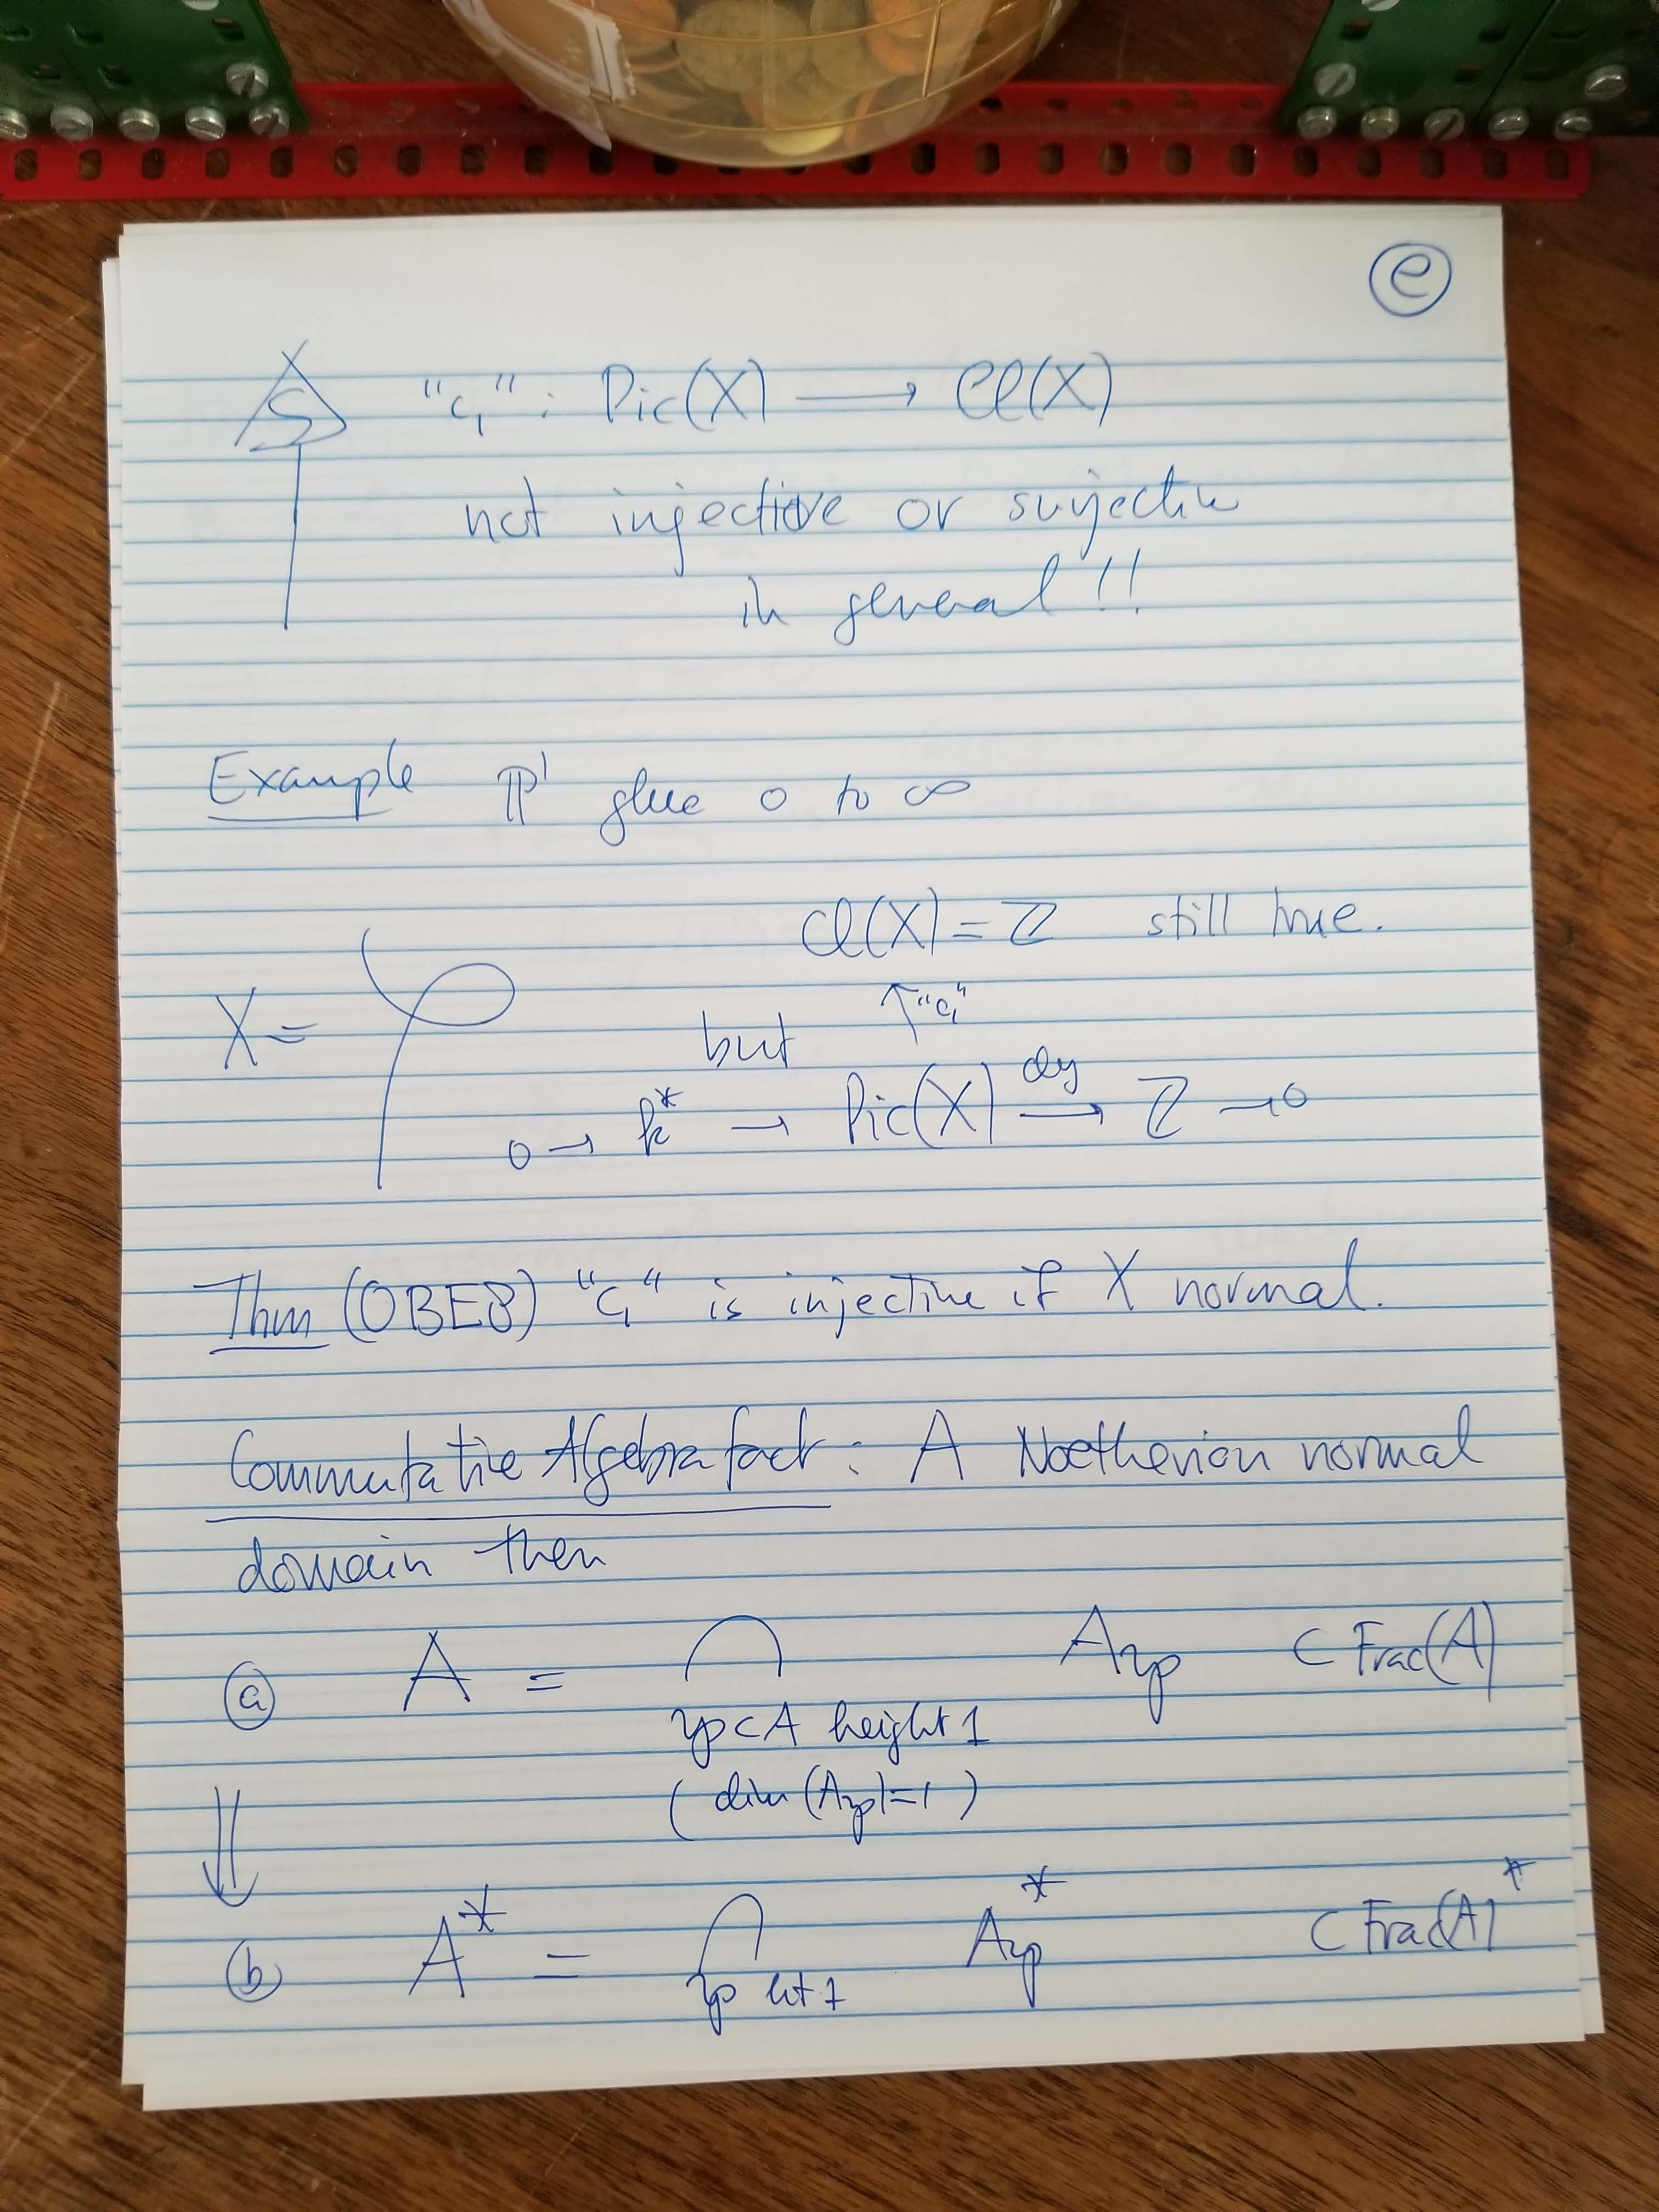 ⓔ
"c₁" : Pic(X) ⟶ Cl(X)
not injective or surjective
in general!!
Example ℙ¹ glue 0 to ∞
Cl(X) = ℤ still true.
X =
but ↑"c₁"
0 → k* → Pic(X) –deg→ ℤ → 0
Thm (0BE8) "c₁" is injective if X normal.
Commutative Algebra fact : A Noetherian normal
domain then
ⓐ A = ∩ A_𝔭 ⊂ Frac(A)
𝔭⊂A height 1
( dim (A_𝔭) = 1 )
⇓
ⓑ A* = ∩ A_𝔭* ⊂ Frac(A)*
𝔭 ht 1